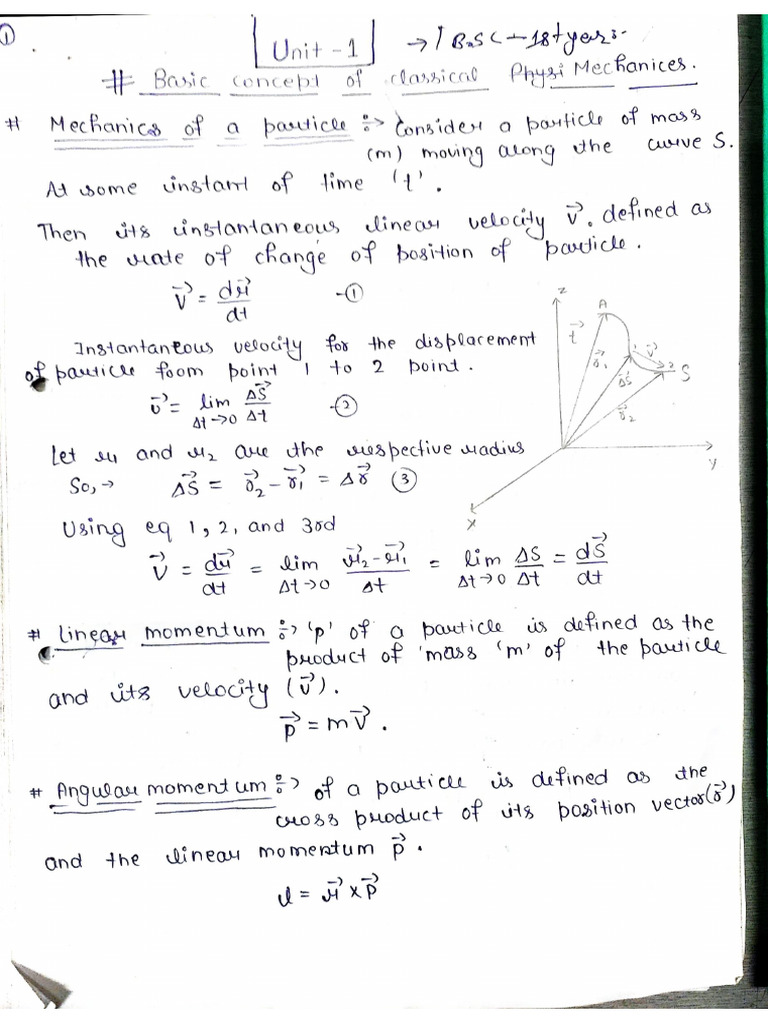 ①
Unit-1 → 1 B.Sc - 1st year:-
# Basic concept of classical Physi Mechanices.
# Mechanics of a particle :→ Consider a particle of mass
(m) moving along the curve S.
At some instant of time 't'.
Then its instantaneous linear velocity v⃗. defined as
the rate of change of position of particle.
v⃗ = dr⃗/dt -①
Instantaneous velocity for the displacement
of particle from point 1 to 2 point.
v⃗ = lim Δt→0 ΔS⃗/Δt -②
Let r1 and r2 are the respective radius
So,→ ΔS⃗ = r⃗2 - r⃗1 = Δr⃗ ③
Z
A
t⃗
r⃗1
1
v⃗
2
S
ΔS⃗
r⃗2
Y
X
Using eq 1, 2, and 3rd
v⃗ = dr⃗/dt = lim Δt→0 r⃗2-r⃗1/Δt = lim Δt→0 ΔS/Δt = dS⃗/dt
# Linear momentum :→ 'p' of a particle is defined as the
product of 'mass 'm' of the particle
and its velocity (v⃗).
p⃗ = mv⃗.
# Angular momentum :→ of a particle is defined as the
cross product of its position vector(r⃗)
and the linear momentum p⃗.
l = r⃗ × p⃗